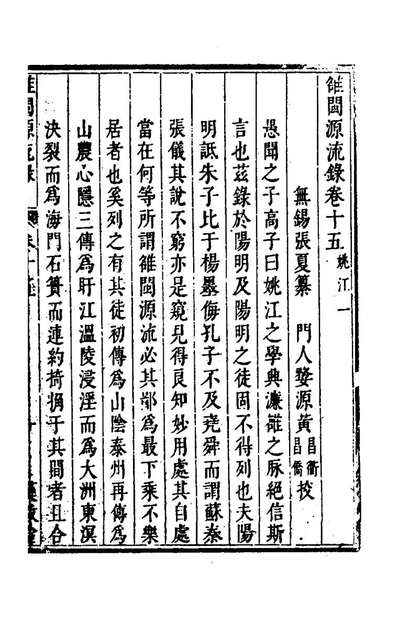 雒閩源流錄卷十五 姚江一
無錫張夏纂 門人婺源黃昌衢昌僑挍
愚聞之子高子曰姚江之學興濂雒之脉絕信斯
言也茲錄於陽明及陽明之徒固不得列也夫陽
明詆朱子比于楊墨侮孔子不及堯舜而謂蘇秦
張儀其說不窮亦是窺見得良知妙用處其自處
當在何等所謂雒閩源流必其鄙為最下乘不樂
居者也奚列之有其徒初傳為山陰泰州再傳為
山農心隱三傳為盱江溫陵浸淫而為大洲東溟
決裂而為海門石簣而連約掎摘于其間者且合
雒閩源流錄 卷十五